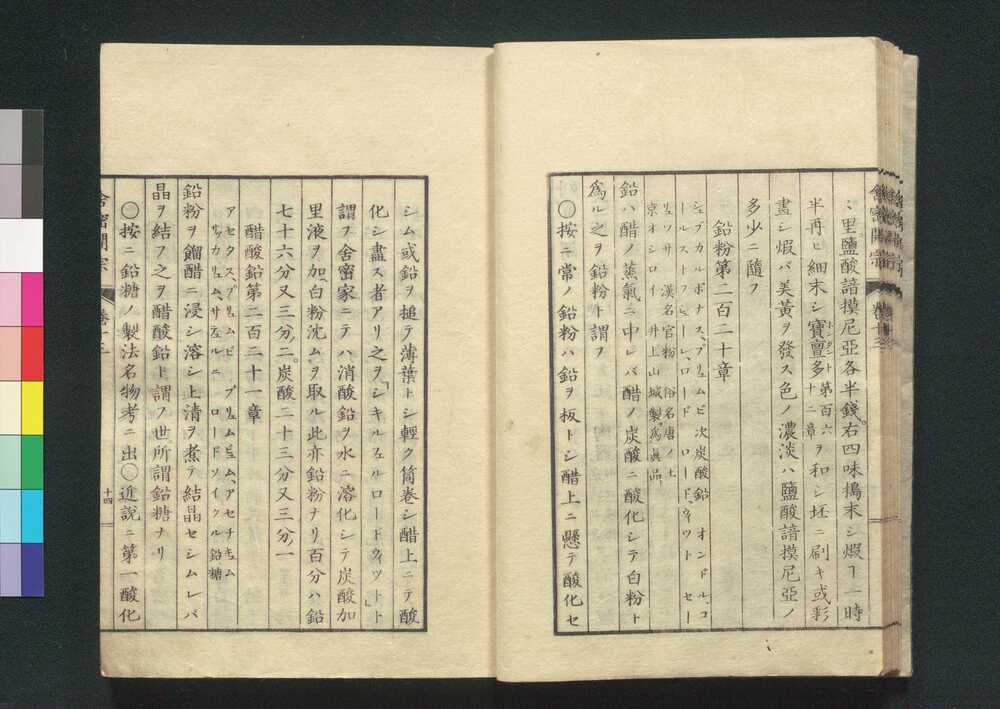 ミ里鹽酸諳摸尼亞各半錢。右四味搗末シ煆ヿ一時
半再ヒ細末シ寶亶多第百六十二章ヲ和シ坯ニ刷キ或彩
畫シ煆バ美黃ヲ發ス色ノ濃淡ハ鹽酸諳摸尼亞ノ
多少ニ隨フ
鉛粉第二百二十章
シュブカルボナス、プリュムビ 次炭酸鉛 オンドル、コ
ールストフシューレ、ロード ロード、ウィット セー
リュソサ 漢名官粉 俗名唐ノ土
京オシロイ 井上山城製爲眞品
鉛ハ醋ノ蒸氣ニ中レバ醋ノ炭酸ニ酸化シテ白粉ト
爲ル之ヲ鉛粉ト謂フ
○按ニ常ノ鉛粉ハ鉛ヲ板トシ醋上ニ懸テ酸化セ
舍密開宗 卷十三
シム或鉛ヲ搥テ薄葉トシ輕ク筒卷シ醋上ニテ酸
化シ盡ス者アリ之ヲ「シキルフェルロードウィット」ト
謂フ舍密家ニテハ消酸鉛ヲ水ニ溶化シテ炭酸加
里液ヲ加、白粉沈ムヲ取ル此亦鉛粉ナリ百分ハ鉛
七十六分又三分ノ二。炭酸二十三分又三分ノ一
醋酸鉛第二百二十一章
アセタス、プリュムビ プリュムビュム、アセチキュム
サッカリュム、サチュルニ ロードソイクル 鉛糖
鉛粉ヲ餾醋ニ浸シ溶シ上清ヲ煮テ結晶セシムレバ
晶ヲ結フ之ヲ醋酸鉛ト謂フ世ニ所謂鉛糖ナリ
○按ニ鉛糖ノ製法名物考ニ出○近說ニ第一酸化
舍密開宗 卷十三 十四